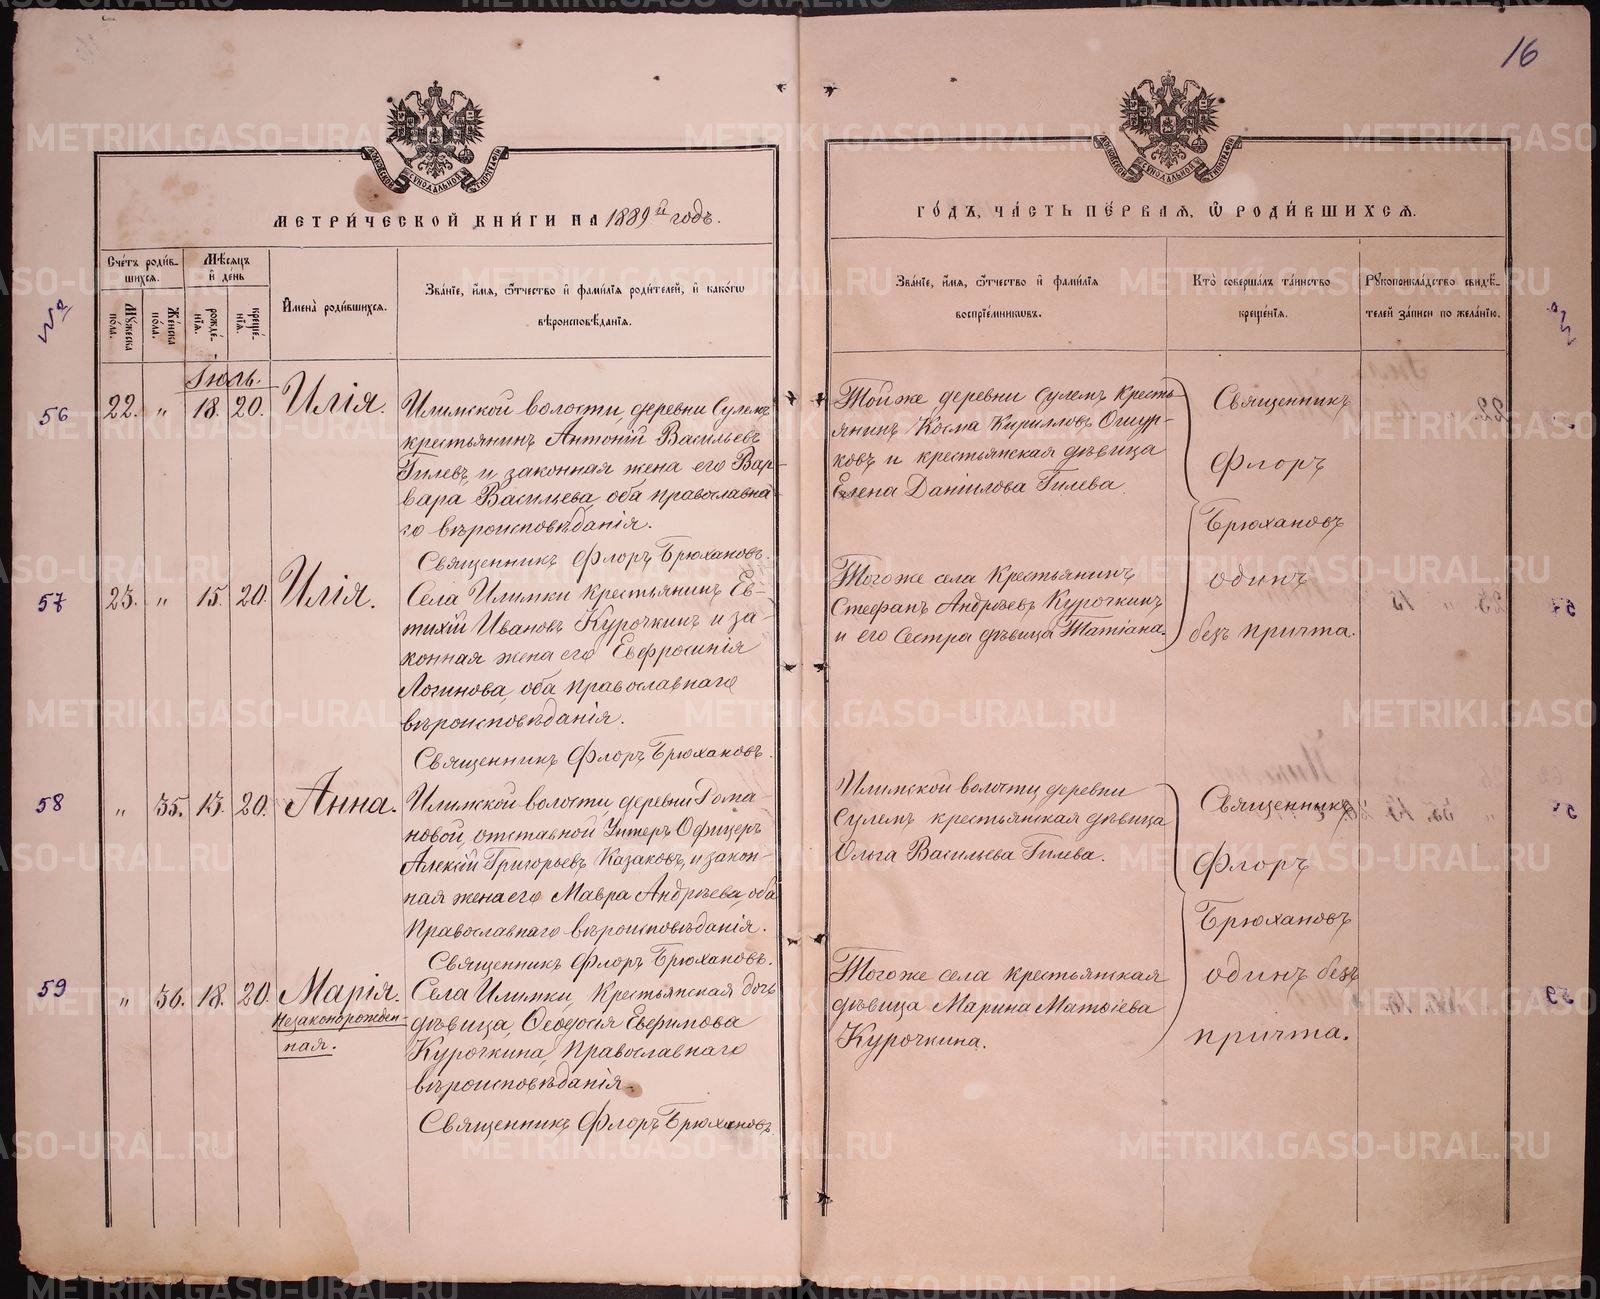 16
МОСКОВСКОЙ СУНОДАЛЬНОЙ ТИПОГРАФІИ
МОСКОВСКОЙ СУНОДАЛЬНОЙ ТИПОГРАФІИ
МЕТРИ́ЧЕСКОЙ КНИ́ГИ НА 1889й годъ.
ГО́ДЪ, ЧА́СТЬ ПЕ́РВАЯ, Ѽ РОДИ́ВШИХСЯ.
Сче́тъ роди́в-
шихся.
Мꙋжеска по́ла.
Же́нска по́ла.
Мѣ́сяцъ
и҆ де́нь
рожде́-
нїя.
креще́-
нїя.
И҆мена̀ роди́вшихся.
Зва́нїе, и҆́мя, ѻ҆́тчество и҆ фами́лїя роди́телей, и҆ како́гѡ
вѣроисповѣ́данїя.
Зва́нїе, и҆́мя, ѻ҆́тчество и҆ фами́лїя
воспрїе́мникѡвъ.
Кто̀ соверша́лъ та́инство
креще́нїя.
Рꙋкоприкла́дство свидѣ́-
телей за́писи по жела́нїю.
Іюль.
56
22. „ 18. 20. Илія.
Илимской волости, деревни Сулемъ
крестьянинъ Антоній Васильевъ
Гилевъ, и законная жена его Вар-
вара Васильева, оба православна-
го вѣроисповѣданія.
Священникъ Флоръ Брюхановъ.
Той же деревни Сулемъ кресть-
янинъ Косма Кирилловъ Ошур-
ковъ и крестьянская дѣвица
Елена Даніилова Гилева.
57
23. „ 15. 20. Илія.
Села Илимки крестьянинъ Ев-
тихій Ивановъ Курочкинъ и за-
конная жена его Евфросинія
Логинова, оба православнаго
вѣроисповѣданія.
Священникъ Флоръ Брюхановъ.
Тогоже села крестьянинъ
Стефанъ Андрѣевъ Курочкинъ
и его сестра дѣвица Татіана.
Священникъ
Флоръ
Брюхановъ
одинъ
безъ причта.
58
„ 35. 13. 20. Анна.
Илимской волости, деревни Рома-
новой, отставной Унтеръ Офицеръ
Алексій Григорьевъ Казаковъ, и закон-
ная жена его Мавра Андрѣева, оба
Православнаго вѣроисповѣданія.
Священникъ Флоръ Брюхановъ.
Илимской волости деревни
Сулемъ крестьянская дѣвица
Ольга Васильева Гилева.
59
„ 36. 18. 20. Марія.
Незаконорожден-
ная.
Села Илимки, крестьянская дочь
дѣвица, Ѳеодосія Евфимова
Курочкина, православнаго
вѣроисповѣданія.
Священникъ Флоръ Брюхановъ.
Тогоже села крестьянская
дѣвица Марина Матѳіева
Курочкина.
Священникъ
Флоръ
Брюхановъ
одинъ безъ
причта.
METRIKI.GASO-URAL.RU